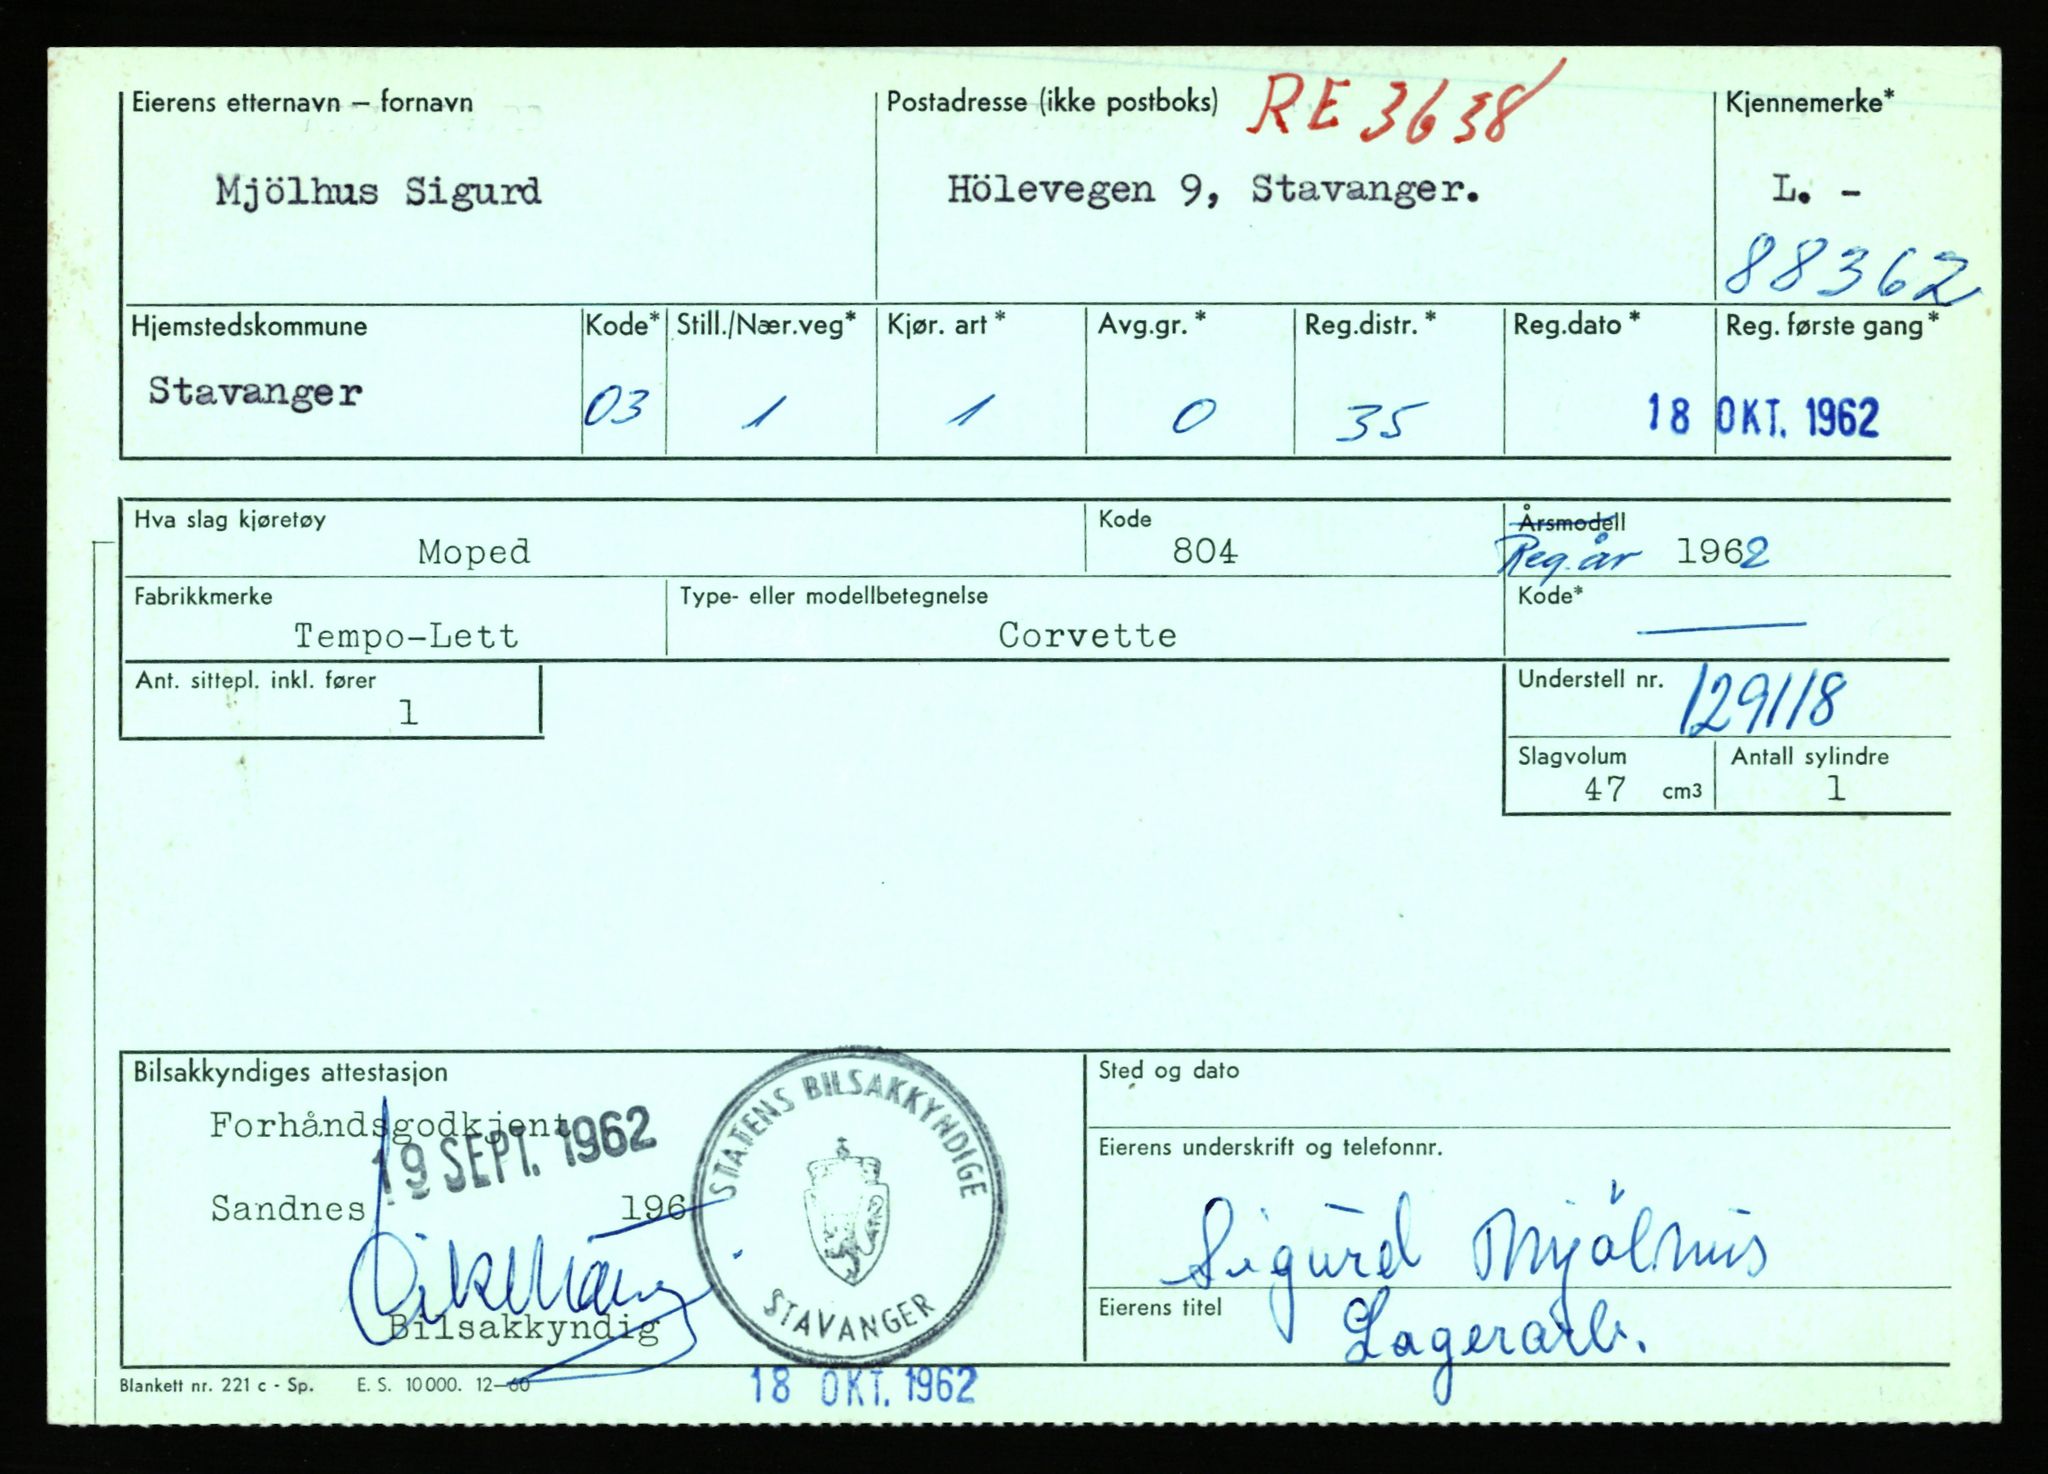 Eierens etternavn – fornavn
Postadresse (ikke postboks) RE 3638
Kjennemerke*
Mjölhus Sigurd
Hölevegen 9, Stavanger.
L. -
88362
Hjemstedskommune
Kode*
Still./Nær.veg*
Kjør. art *
Avg.gr. *
Reg.distr. *
Reg.dato *
Reg. første gang *
Stavanger
03
1
1
0
35
18 OKT. 1962
Hva slag kjøretøy
Moped
Kode
804
Årsmodell
Reg.år 1962
Fabrikkmerke
Tempo-Lett
Type- eller modellbetegnelse
Corvette
Kode*
Ant. sittepl. inkl. fører
1
Understell nr. 129118
Slagvolum
47 cm3
Antall sylindre
1
Bilsakkyndiges attestasjon
Forhåndsgodkjent
19 SEPT. 1962
Sandnes 196
Bilsakkyndig
STATENS BILSAKKYNDIGE
STAVANGER
18 OKT. 1962
Sted og dato
Eierens underskrift og telefonnr.
Sigurd Mjölhus
Eierens titel
Lagerarb.
Blankett nr. 221 c - Sp. E. S. 10 000. 12–60